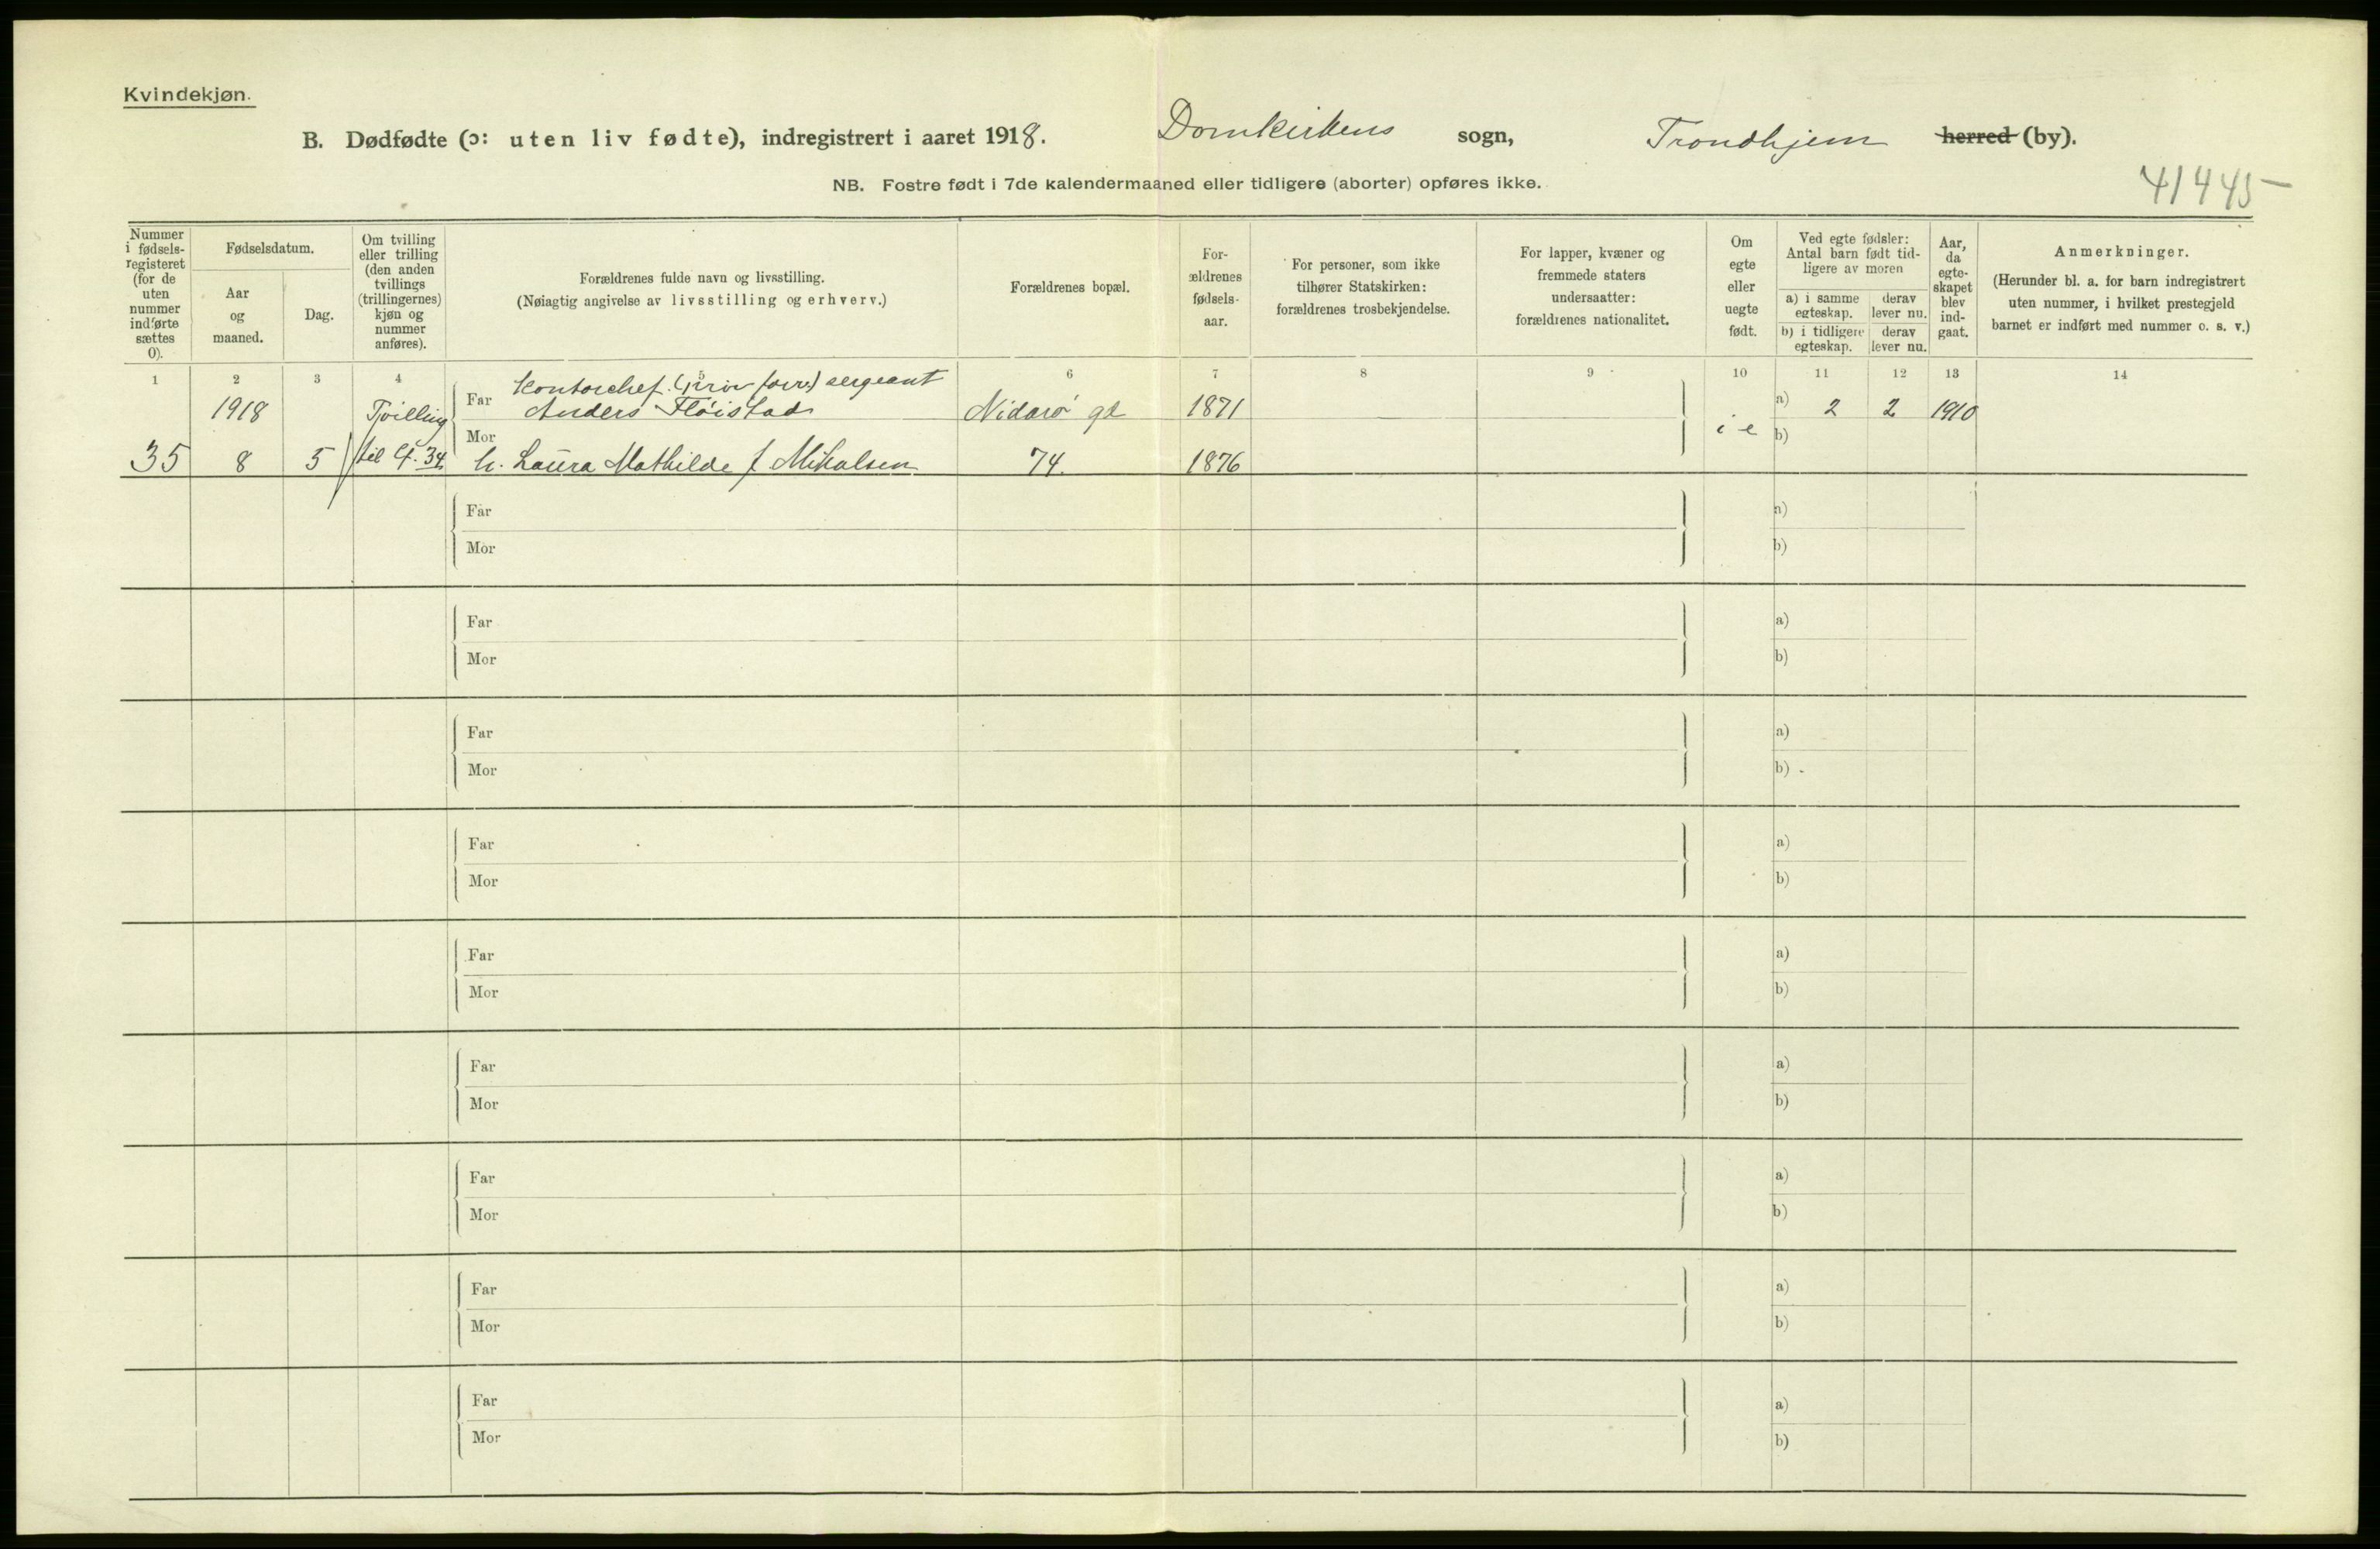 Kvindekjøn.
B. Dødfødte (ɔ: uten liv fødte), indregistrert i aaret 1918. Domkirkens sogn, Trondhjem herred (by).
NB. Fostre født i 7de kalendermaaned eller tidligere (aborter) opføres ikke.
41445
Nummer i fødsels-registeret (for de uten nummer indførte sættes 0).
Fødselsdatum.
Aar og maaned.
Dag.
Om tvilling eller trilling (den anden tvillings (trillingernes) kjøn og nummer anføres).
Forældrenes fulde navn og livsstilling.
(Nøiagtig angivelse av livsstilling og erhverv.)
Forældrenes bopæl.
For-ældrenes fødsels-aar.
For personer, som ikke tilhører Statskirken: forældrenes trosbekjendelse.
For lapper, kvæner og fremmede staters undersaatter: forældrenes nationalitet.
Om egte eller uegte født.
Ved egte fødsler: Antal barn født tid-ligere av moren
a) i samme egteskap.
derav lever nu.
b) i tidligere egteskap.
derav lever nu.
Aar, da egte-skapet blev ind-gaat.
Anmerkninger.
(Herunder bl. a. for barn indregistrert uten nummer, i hvilket prestegjeld barnet er indført med nummer o. s. v.)
1 2 3 4 5 6 7 8 9 10 11 12 13 14
Kontorchef. sergeant
1918 Tvilling Far Anders Fløistad Nidarø gd 1871 a) 2 2 1910
Mor i e b)
35 8 5 til 34 h. Laura Mathilde f Mikalsen 74. 1876
Far a)
Mor b)
Far a)
Mor b)
Far a)
Mor b)
Far a)
Mor b)
Far a)
Mor b)
Far a)
Mor b)
Far a)
Mor b)
Far a)
Mor b)
Far a)
Mor b)